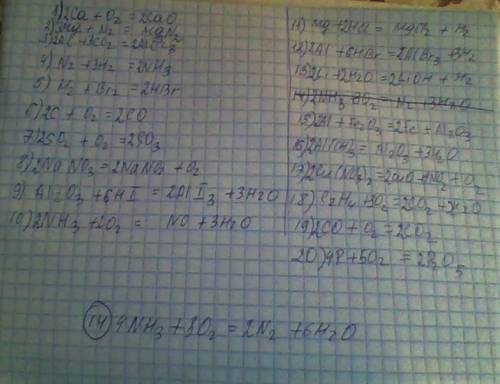 1) 2Ca + O₂ = 2CaO
2) 3Mg + N₂ = Mg₃N₂
3) 2Al + 3Cl₂ = 2AlCl₃
4) N₂ + 3H₂ = 2NH₃
5) H₂ + Br₂ = 2HBr
6) 2C + O₂ = 2CO
7) 2SO₂ + O₂ = 2SO₃
8) 2NaNO₃ = 2NaNO₂ + O₂
9) Al₂O₃ + 6HI = 2AlI₃ + 3H₂O
10) 2NH₃ + O₂ = NO + 3H₂O
11) Mg + 2HCl = MgCl₂ + H₂
12) 2Al + 6HBr = 2AlBr₃ + 3H₂
13) 2Li + 2H₂O = 2LiOH + H₂
15) 2Al + Fe₂O₃ = 2Fe + Al₂O₃
16) 2Al(OH)₃ = Al₂O₃ + 3H₂O
17) 2Cu(NO₃)₂ = 2CuO + 4NO₂ + O₂
18) C₂H₄ + 3O₂ = 2CO₂ + 2H₂O
19) 2CO + O₂ = 2CO₂
20) 4P + 5O₂ = 2P₂O₅
14 4NH₃ + 3O₂ = 2N₂ + 6H₂O